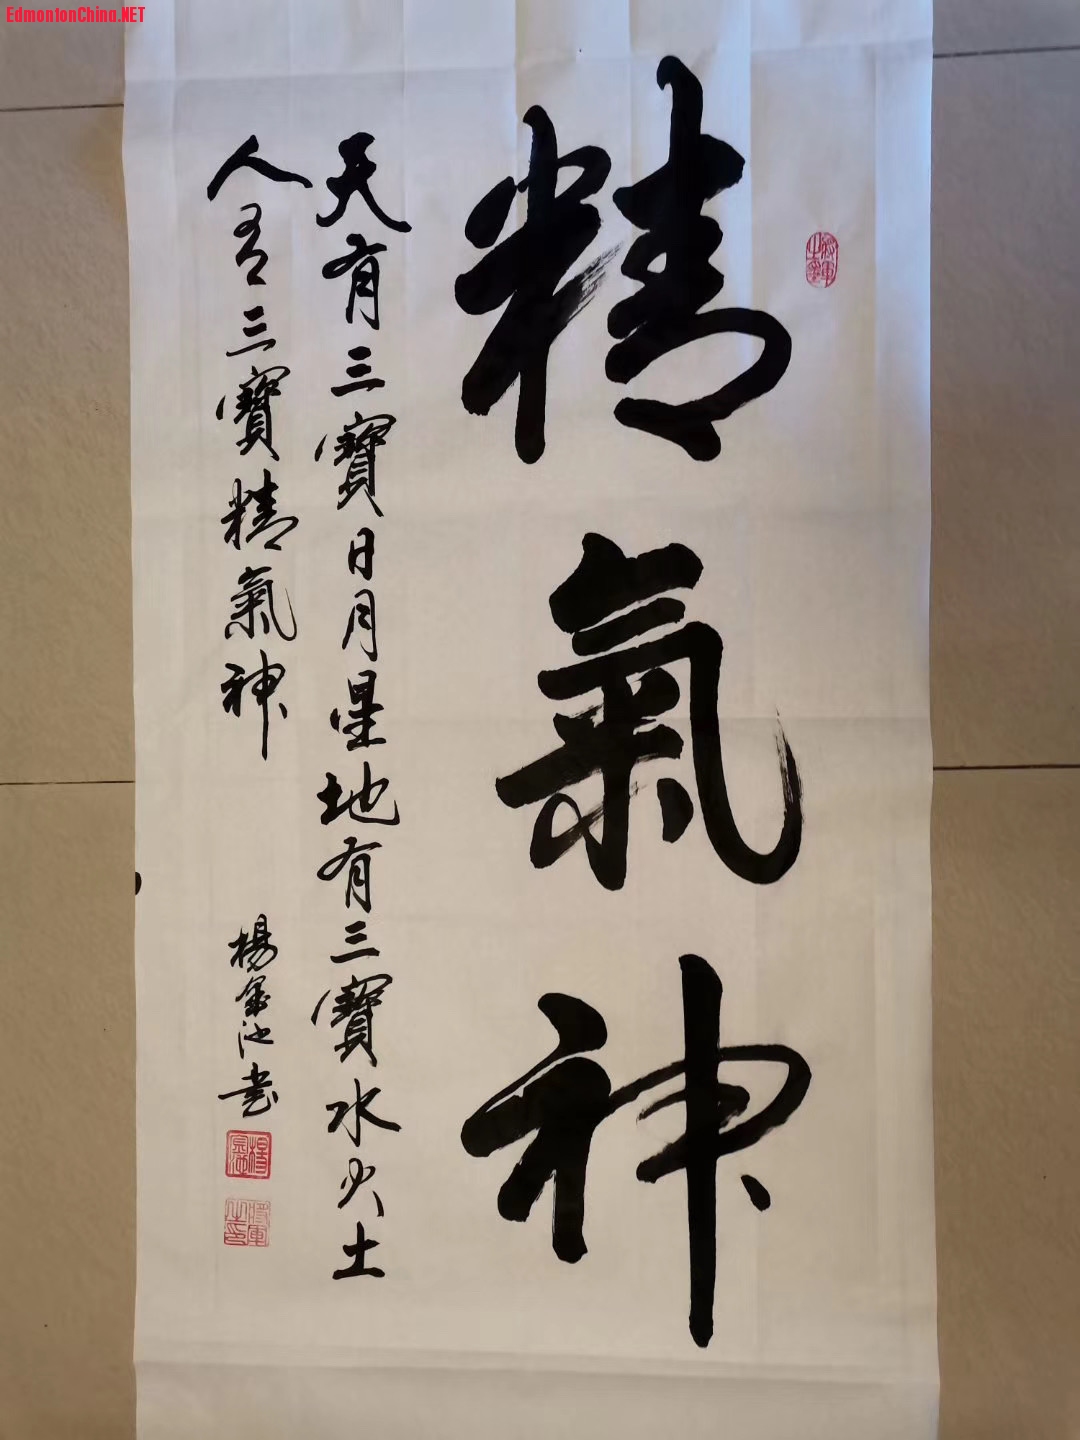 EdmontonChina.NET
精氣神
天有三寶日月星地有三寶水火土
人有三寶精氣神
楊金池書